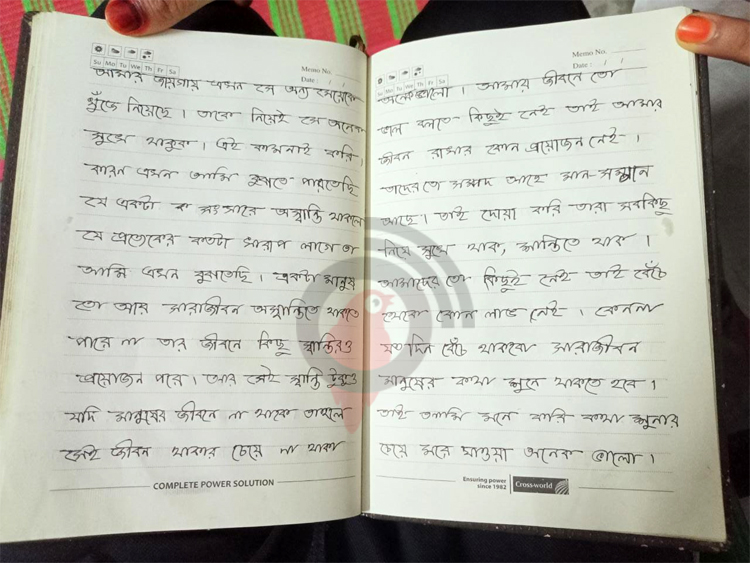 Memo No.
Su Mo Tu We Th Fr Sa
Date : / /
আমার জায়গায় এখন সে অন্য মেয়েকে
খুঁজে নিয়েছে। তাকে নিয়েই সে অনেক
সুখে থাকুক। এই কামনাই করি।
কারন এখন আমি বুঝতে পারতেছি
যে একটা সংসারে অশান্তি থাকলে
যে প্রত্যেকের কতটা খারাপ লাগে তা
আমি এখন বুঝতেছি। একটা মানুষ
তো আর সারাজীবন অশান্তিতে থাকতে
পারে না তার জীবনে কিছু শান্তিরও
প্রয়োজন পরে। আর সেই শান্তি টুকুও
যদি মানুষের জীবনে না থাকে তাহলে
সেই জীবন থাকার চেয়ে না থাকা
COMPLETE POWER SOLUTION
Memo No.
Su Mo Tu We Th Fr Sa
Date : / /
অনেক ভালো। আমার জীবনে তো
ভাল বলতে কিছুই নেই তাই আমার
জীবন রাখার কোন প্রয়োজন নেই।
তাদের তো সম্পদ আছে মান-সম্মান
আছে। তাই দোয়া করি তারা সবকিছু
নিয়ে সুখে থাক, শান্তিতে থাক।
আমাদের তো কিছুই নেই তাই বেঁচে
থেকে কোন লাভ নেই। কেননা
যত দিন বেঁচে থাকবো সারাজীবন
মানুষের কথা শুনে থাকতে হবে।
তাই আমি মনে করি কথা শুনার
চেয়ে মরে যাওয়া অনেক ভালো।
Ensuring power
since 1982
Cross-world